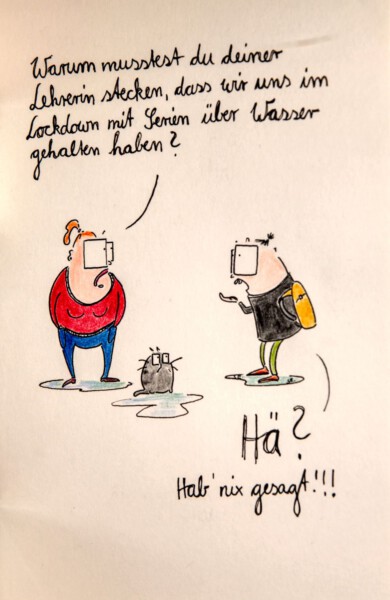 Warum musstest du deiner
Lehrerin stecken, dass wir uns im
Lockdown mit Serien über Wasser
gehalten haben?
Hä?
Hab' nix gesagt!!!